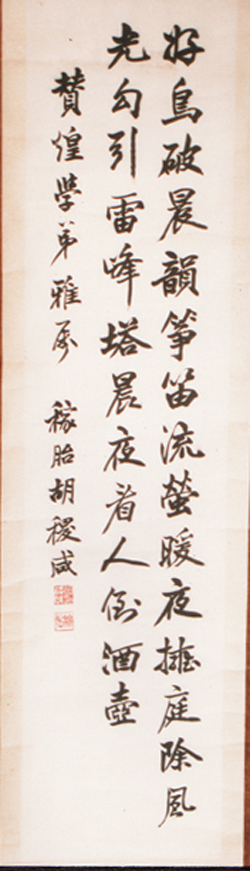 好鳥破晨韻箏笛流螢暖夜擁庭除風
光勾引雷峰塔晨夜看人倒酒壺
贊煌學弟雅屬 稼胎胡稷咸